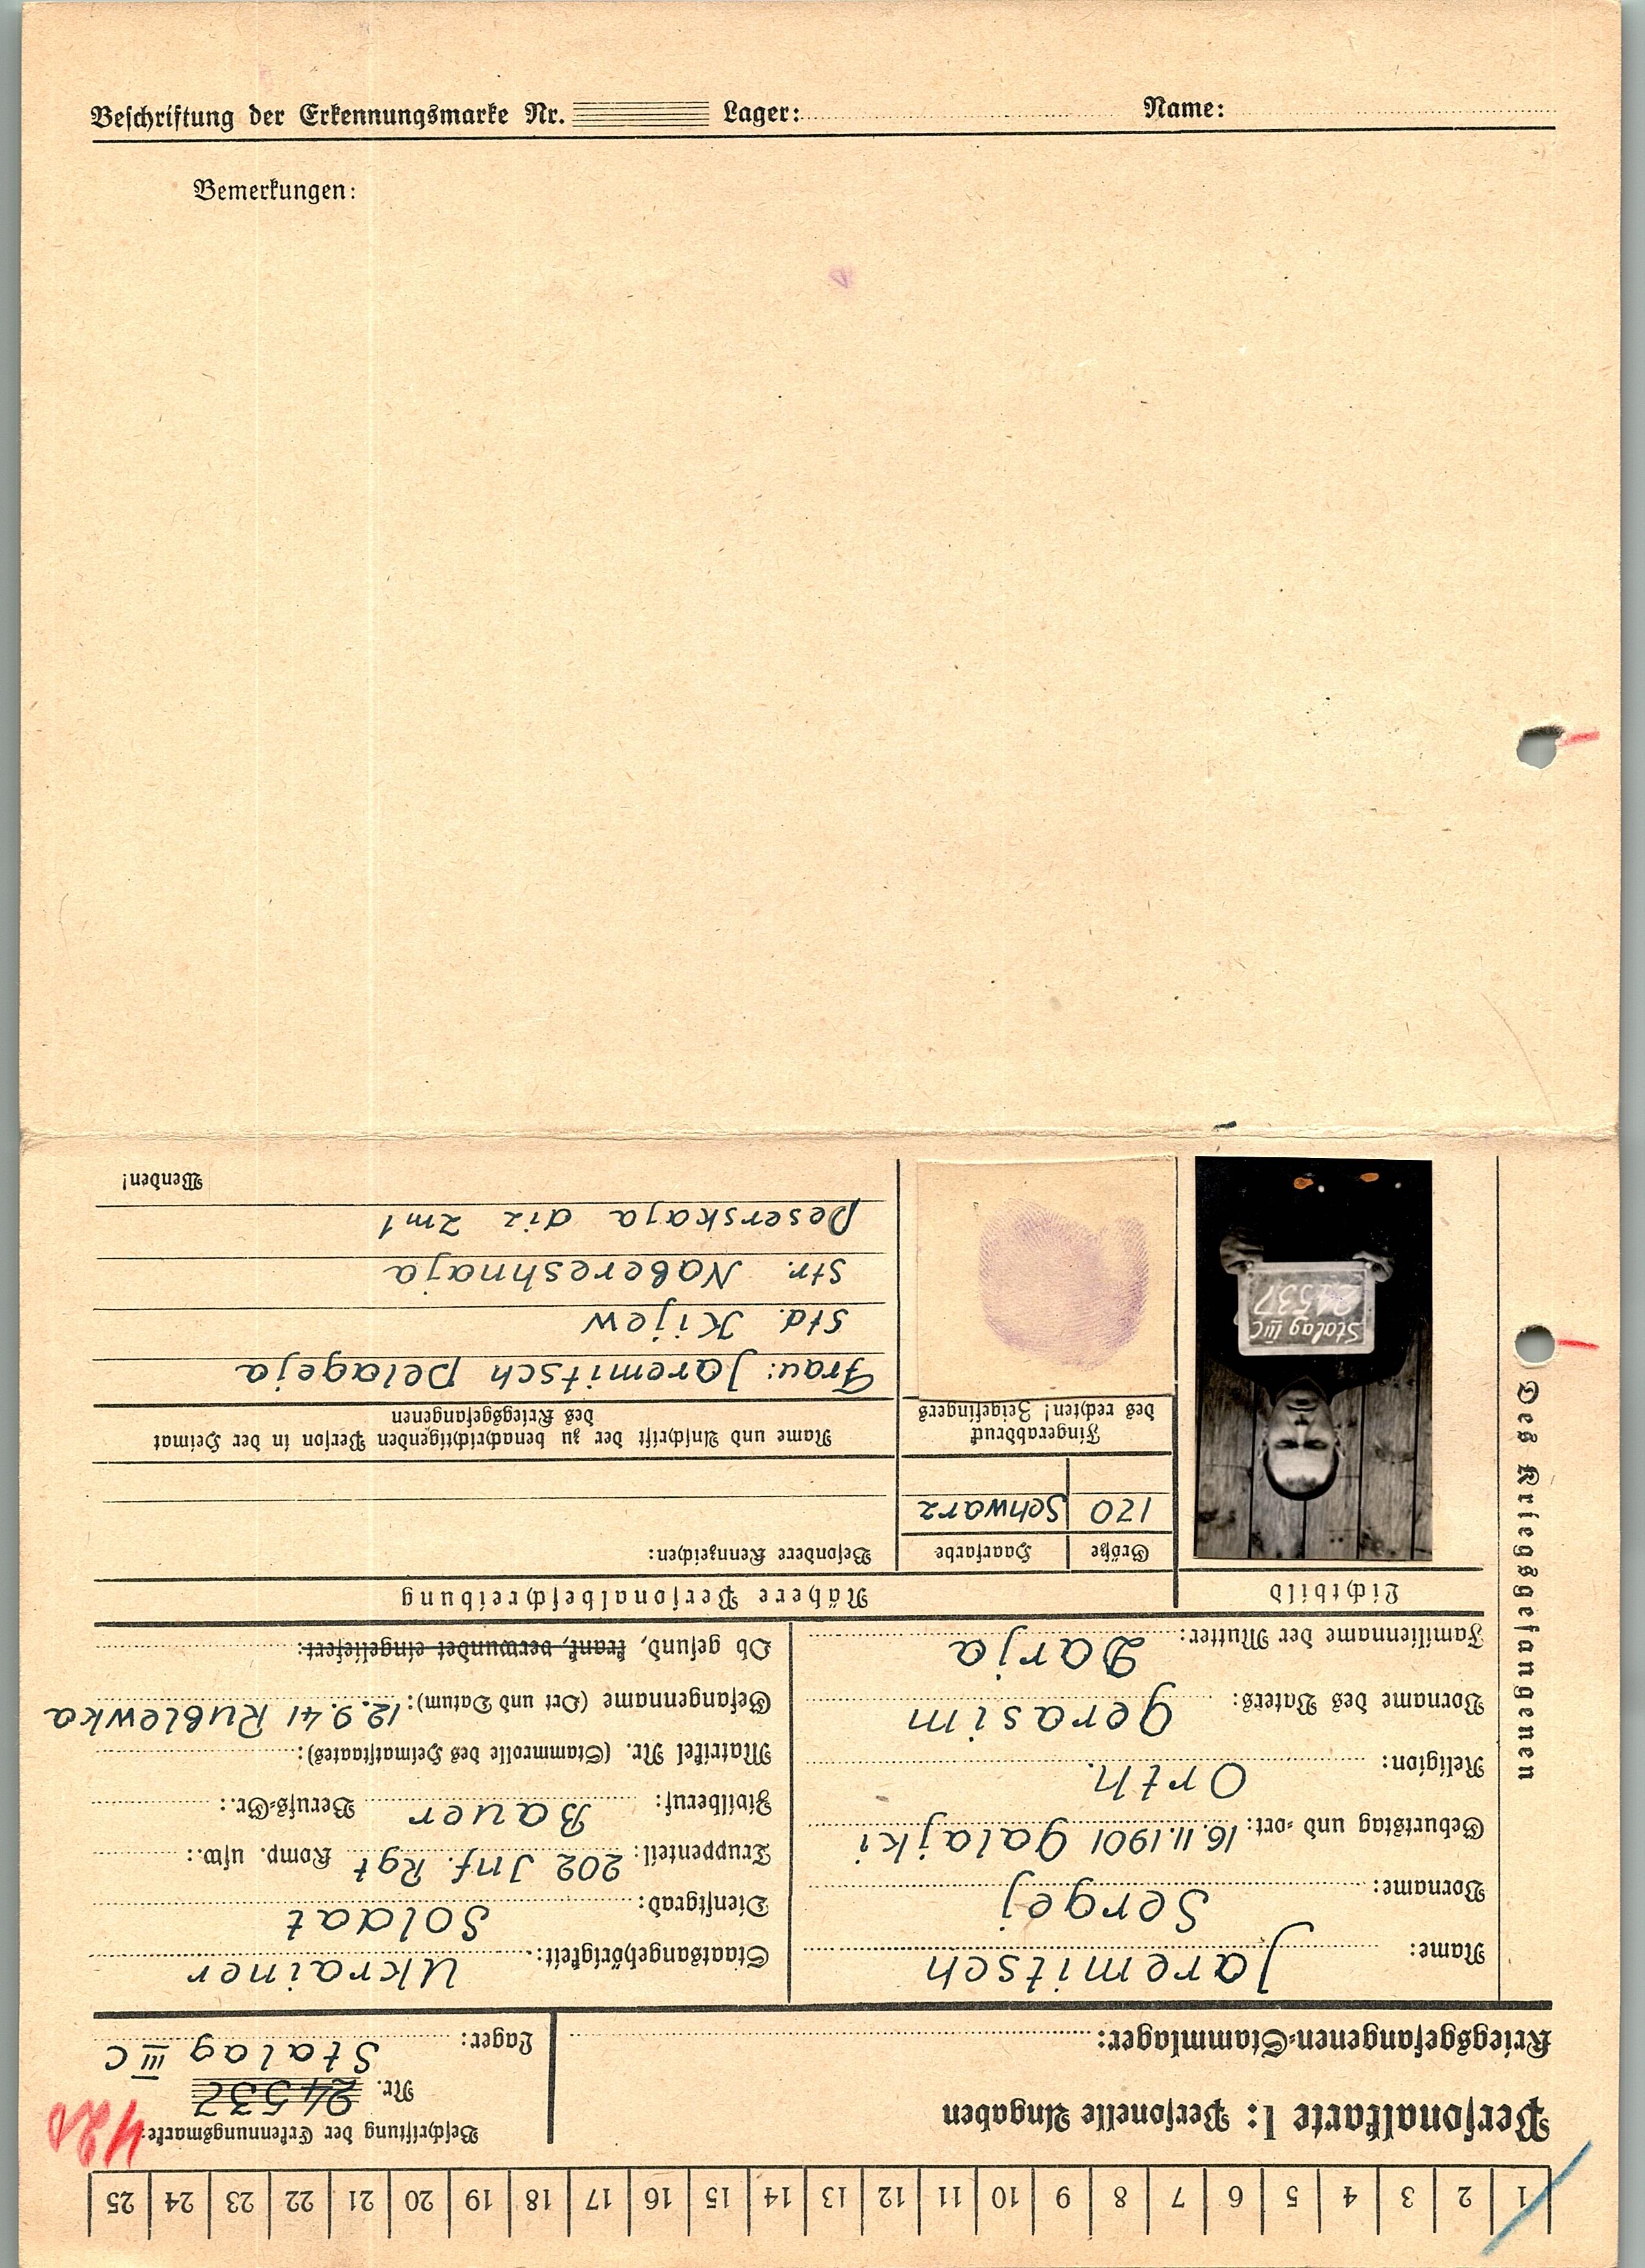 Beschriftung der Erkennungsmarke Nr. Lager: Name:
Bemerkungen:
1 2 3 4 5 6 7 8 9 10 11 12 13 14 15 16 17 18 19 20 21 22 23 24 25
Personalkarte I: Personelle Angaben
Beschriftung der Erkennungsmarke:
Nr. 24537
Kriegsgefangenen-Stammlager:
Lager: Stalag III C
Des Kriegsgefangenen
Name: Jaremitsch
Vorname: Sergej
Geburtstag und -ort: 16.11.1901 Galajki
Religion: Orth.
Vorname des Vaters: Gerasim
Familienname der Mutter: Darja
Staatsangehörigkeit: Ukrainer
Dienstgrad: Soldat
Truppenteil: 202 Inf. Rgt Komp. usw.:
Zivilberuf: Bauer Berufs-Gr.:
Matrikel Nr. (Stammrolle des Heimatstaates):
Gefangennahme (Ort und Datum): 12.9.41 Rublewka
Ob gesund, krank, verwundet eingeliefert:
Lichtbild
Stalag III C
24537
Nähere Personalbeschreibung
Größe Haarfarbe Besondere Kennzeichen:
170 Schwarz
Fingerabdruck
des rechten! Zeigefingers
Name und Anschrift der zu benachrichtigenden Person in der Heimat
des Kriegsgefangenen
Frau: Jaremitsch Pelageja
Std. Kijew
Str. Nabereshnaja
Peserskaja
Wenden!